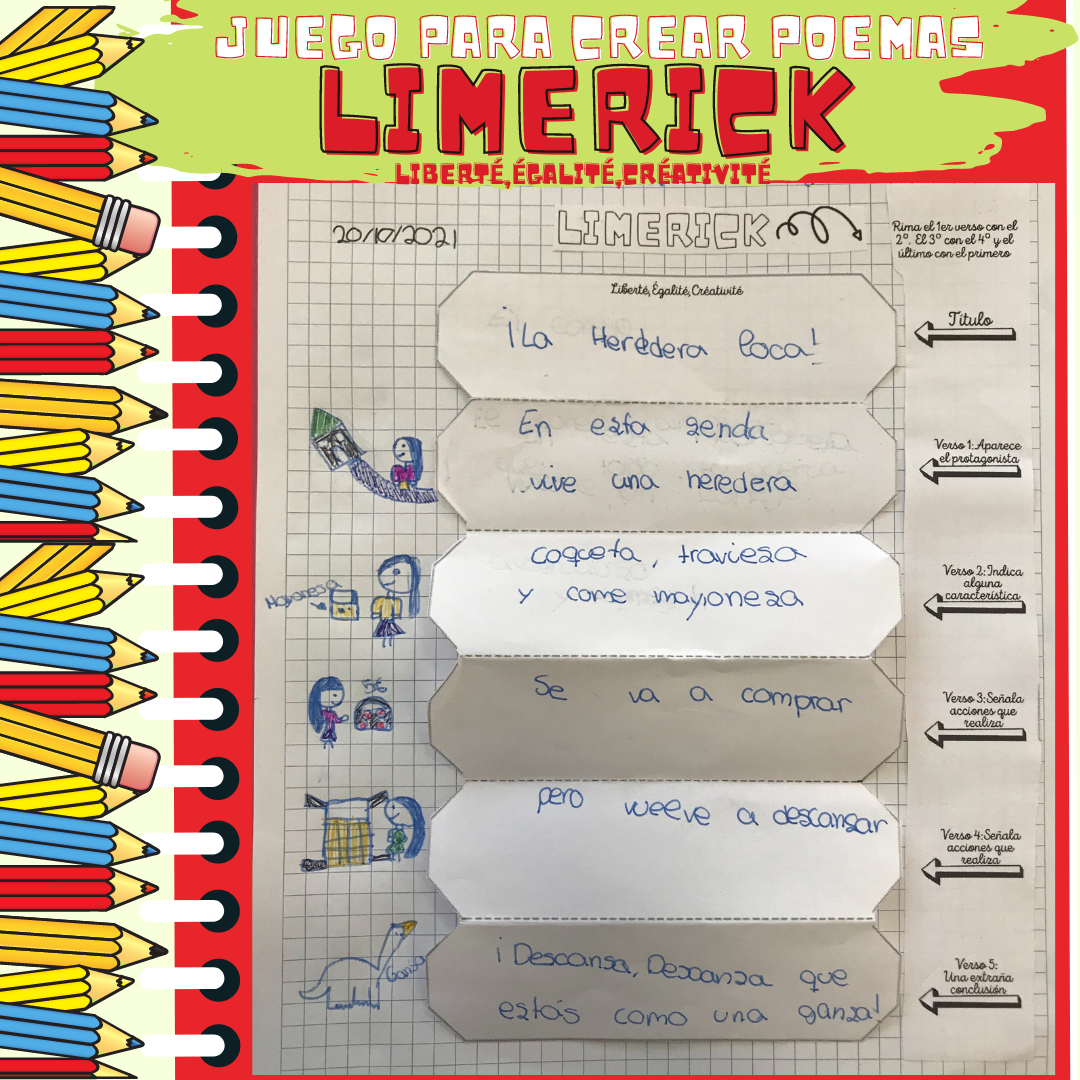 JUEGO PARA CREAR POEMAS
LIMERICK
LIBERTÉ,ÉGALITÉ,CRÉATIVITÉ
20/10/2021
LIMERICK
Rima el 1er verso con el
2º. El 3º con el 4º y el
último con el primero
Liberté,Égalité,Créativité
¡La Heredera loca!
Título
En esta senda
vive una heredera
Verso 1:Aparece
el protagonista
coqueta, traviesa
y come mayonesa
Mayonesa
Verso 2:Indica
alguna
característica
Se va a comprar
5€
Verso 3:Señala
acciones que
realiza
pero vuelve a descansar
Verso 4:Señala
acciones que
realiza
¡Descansa, Descansa que
estás como una ganza!
Ganso
Verso 5:
Una extraña
conclusión